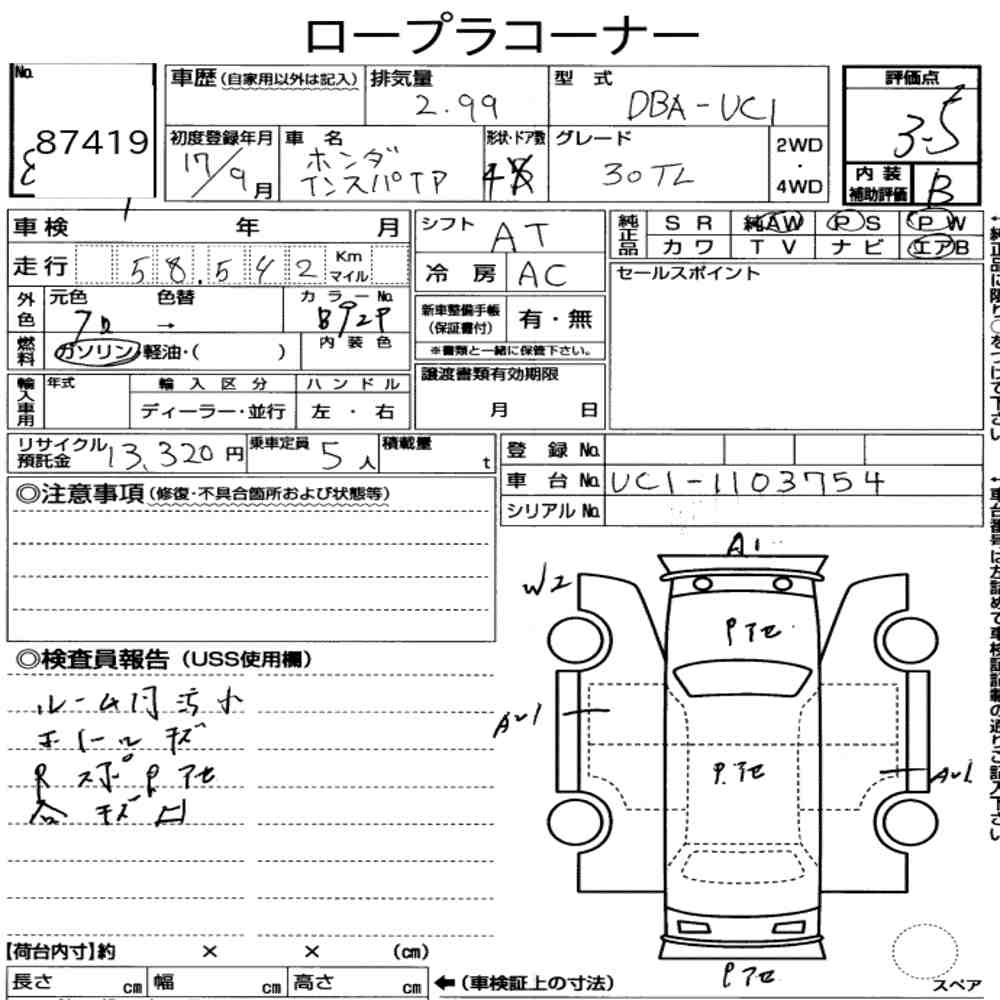 ロープラコーナー
No.
87419
車歴 (自家用以外は記入)
排気量
2.99
型 式
DBA-UC1
評価点
3.5
初度登録年月
17/9月
車 名
ホンダ
インスパイア
形状・ドア数
4
グレード
30TL
2WD
・
4WD
内 装
補助評価
B
車検 年 月
シフト
AT
純正品
S R 純AW P S P W
カ ワ T V ナ ビ エアB
走行 58,542 Km マイル
冷 房 AC
セールスポイント
外色
元色 色替 カラーNo.
クロ → B92P
新車整備手帳
(保証書付)
有・無
燃料
ガソリン・軽油・( )
内 装 色
※書類と一緒に保管下さい。
輸入車用
年式
輸 入 区 分
ハ ン ド ル
ディーラー・並行
左 ・ 右
譲渡書類有効期限
月 日
リサイクル
預託金
13,320円
乗車定員
5人
積載量
t
登 録 No.
車 台 No. UC1-1103754
シリアル No.
◎注意事項 (修復・不具合箇所および状態等)
◎検査員報告 (USS使用欄)
ルーム内汚れ
ホイールキズ
Rスポ P.アセ
台 キズ凹
A1
W2
Pアセ
AU1
P.アセ
AU1
Pアセ
【荷台内寸】約 × × (cm)
長さ cm 幅 cm 高さ cm
←(車検証上の寸法)
スペア
←純正品に限り○をつけて下さい
←車台番号は左詰めで車検証記載の通りご記入下さい